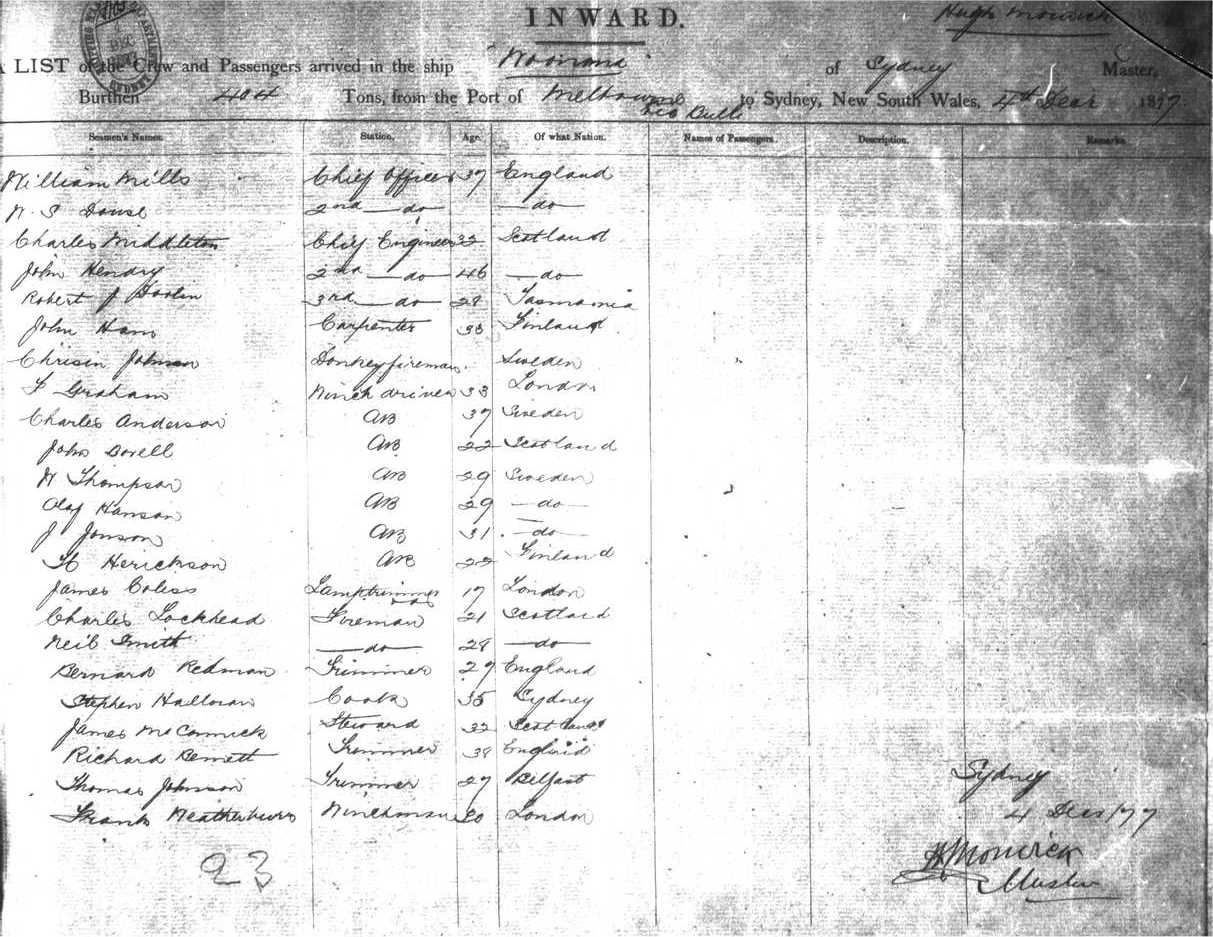 INWARD.
Hugh Monrick
A LIST of the Crew and Passengers arrived in the ship "Woonona" of Sydney Master,
Burthen 404 Tons, from the Port of Melbourne to Sydney, New South Wales, 4th Decr 1877
via Bulli
Seamen's Names. Station. Age. Of what Nation. Names of Passengers. Description. Remarks.
William Mills Chief Officer 37 England
2nd — do — do —
Charles Middleton Chief Engineer 32 Scotland
John Hendry 2nd — do — 46 — do —
Robert J 3rd — do — 28 Tasmania
John Carpenter 33 Finland
Johnson Donkeyfireman. Sweden
F Graham Winch driver 33 London
Charles Anderson AB 37 Sweden
John AB 22 Scotland
W Thompson AB 29 Sweden
Olaf Hanson AB 29 — do —
J Jonson AB 31 — do —
Herickson AB 22 Finland
James Lamptrimmer 17 London
Charles Lockhead Fireman 21 Scotland
Neil Smith — do — 28 — do —
Bernard Redman Trimmer 27 England
Stephen Halloran Cook 35 Sydney
James McCormick Steward 32 Scotland
Richard Bennett Trimmer 38 England
Thomas Johnson Trimmer 27 Belfast
Frank Weatherburn Winchman 20 London
23
Sydney
4 Decr /77
H Monrick
Master